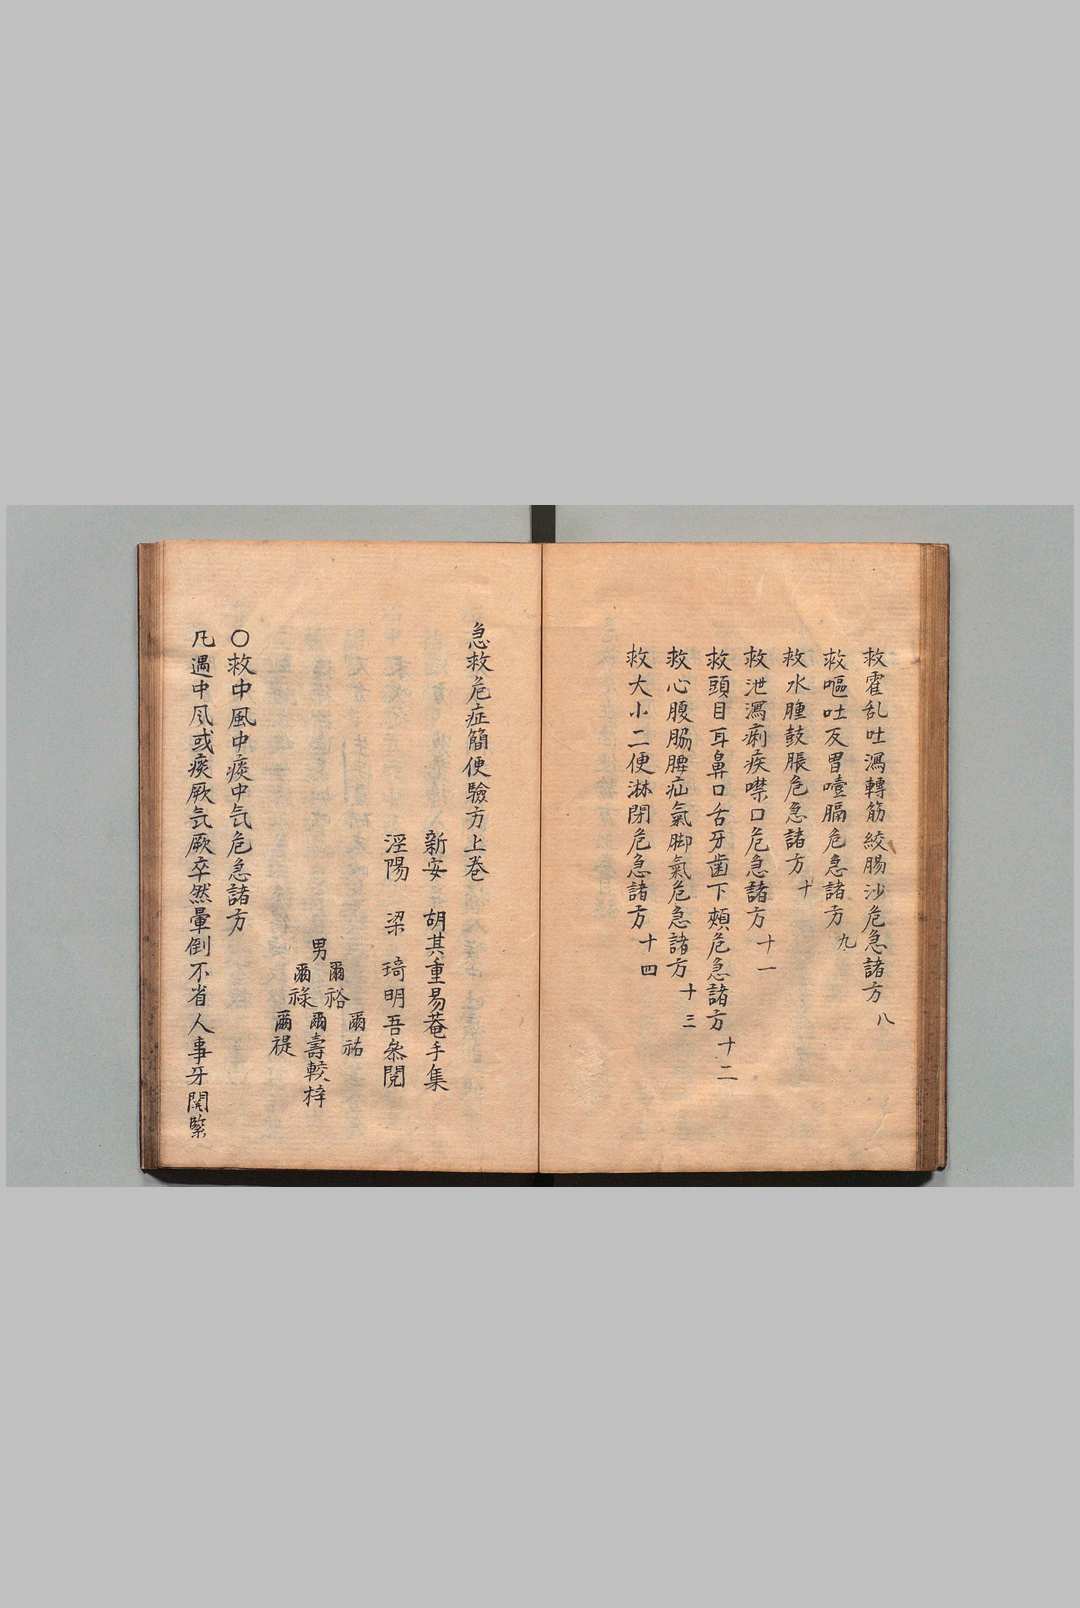 救霍乱吐瀉轉筋絞腸沙危急諸方 八
救嘔吐反胃噎膈危急諸方 九
救水腫鼓脹危急諸方 十
救泄瀉痢疾噤口危急諸方 十一
救頭目耳鼻口舌牙齒下頰危急諸方 十二
救心腹脇脾疝氣脚氣危急諸方 十三
救大小二便淋閉危急諸方 十四
急救危症簡便驗方上巻
新安 胡其重易菴手集
涇陽 梁 琦明吾叅閱
爾祐
爾裕
男 爾壽較梓
爾祿
爾禔
〇救中風中痰中気危急諸方
凡遇中风或痰厥気厥卒然暈倒不省人事牙関緊